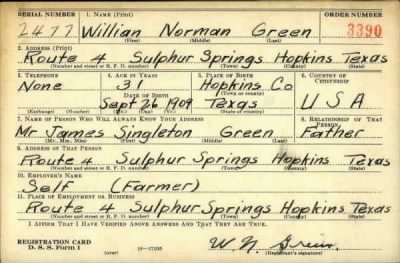 SERIAL NUMBER 1. NAME (Print) ORDER NUMBER
2477 Willian Norman Green 3390
(First) (Middle) (Last)
2. ADDRESS (Print)
Route 4 Sulphur Springs Hopkins Texas
(Number and street or R. F. D. number) (Town) (County) (State)
3. TELEPHONE 4. AGE IN YEARS 5. PLACE OF BIRTH 6. COUNTRY OF CITIZENSHIP
None 31 Hopkins Co
DATE OF BIRTH (Town or county)
Sept 26 1909 Texas USA
(Exchange) (Number) (Mo.) (Day) (Yr.) (State or country)
7. NAME OF PERSON WHO WILL ALWAYS KNOW YOUR ADDRESS 8. RELATIONSHIP OF THAT PERSON
Mr James Singleton Green Father
(Mr., Mrs., Miss) (First) (Middle) (Last)
9. ADDRESS OF THAT PERSON
Route 4 Sulphur Springs Hopkins Texas
(Number and street or R. F. D. number) (Town) (County) (State)
10. EMPLOYER'S NAME
Self (Farmer)
11. PLACE OF EMPLOYMENT OR BUSINESS
Route 4 Sulphur Springs Hopkins Texas
(Number and street or R. F. D. number) (Town) (County) (State)
I AFFIRM THAT I HAVE VERIFIED ABOVE ANSWERS AND THAT THEY ARE TRUE.
REGISTRATION CARD
D. S. S. Form 1 (over) 16—17105 W. N. Green
(Registrant's signature)